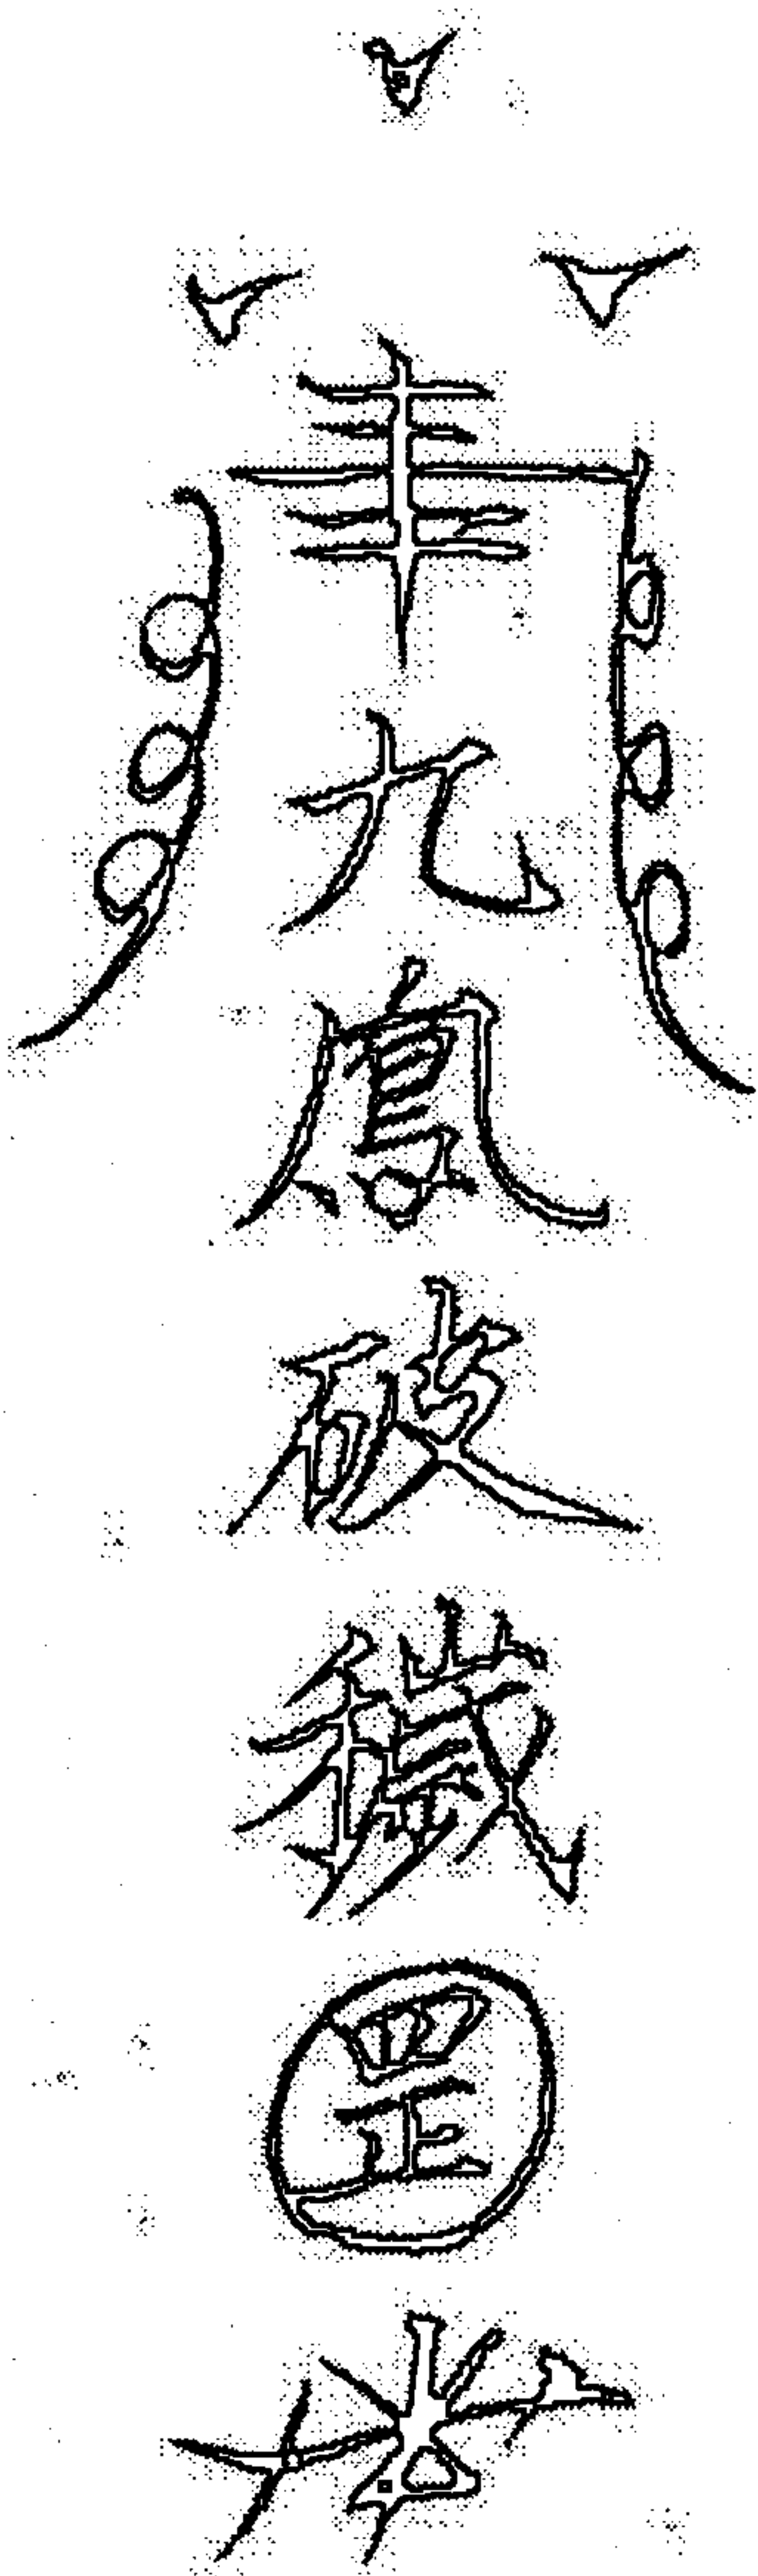 九鳳破穢罡